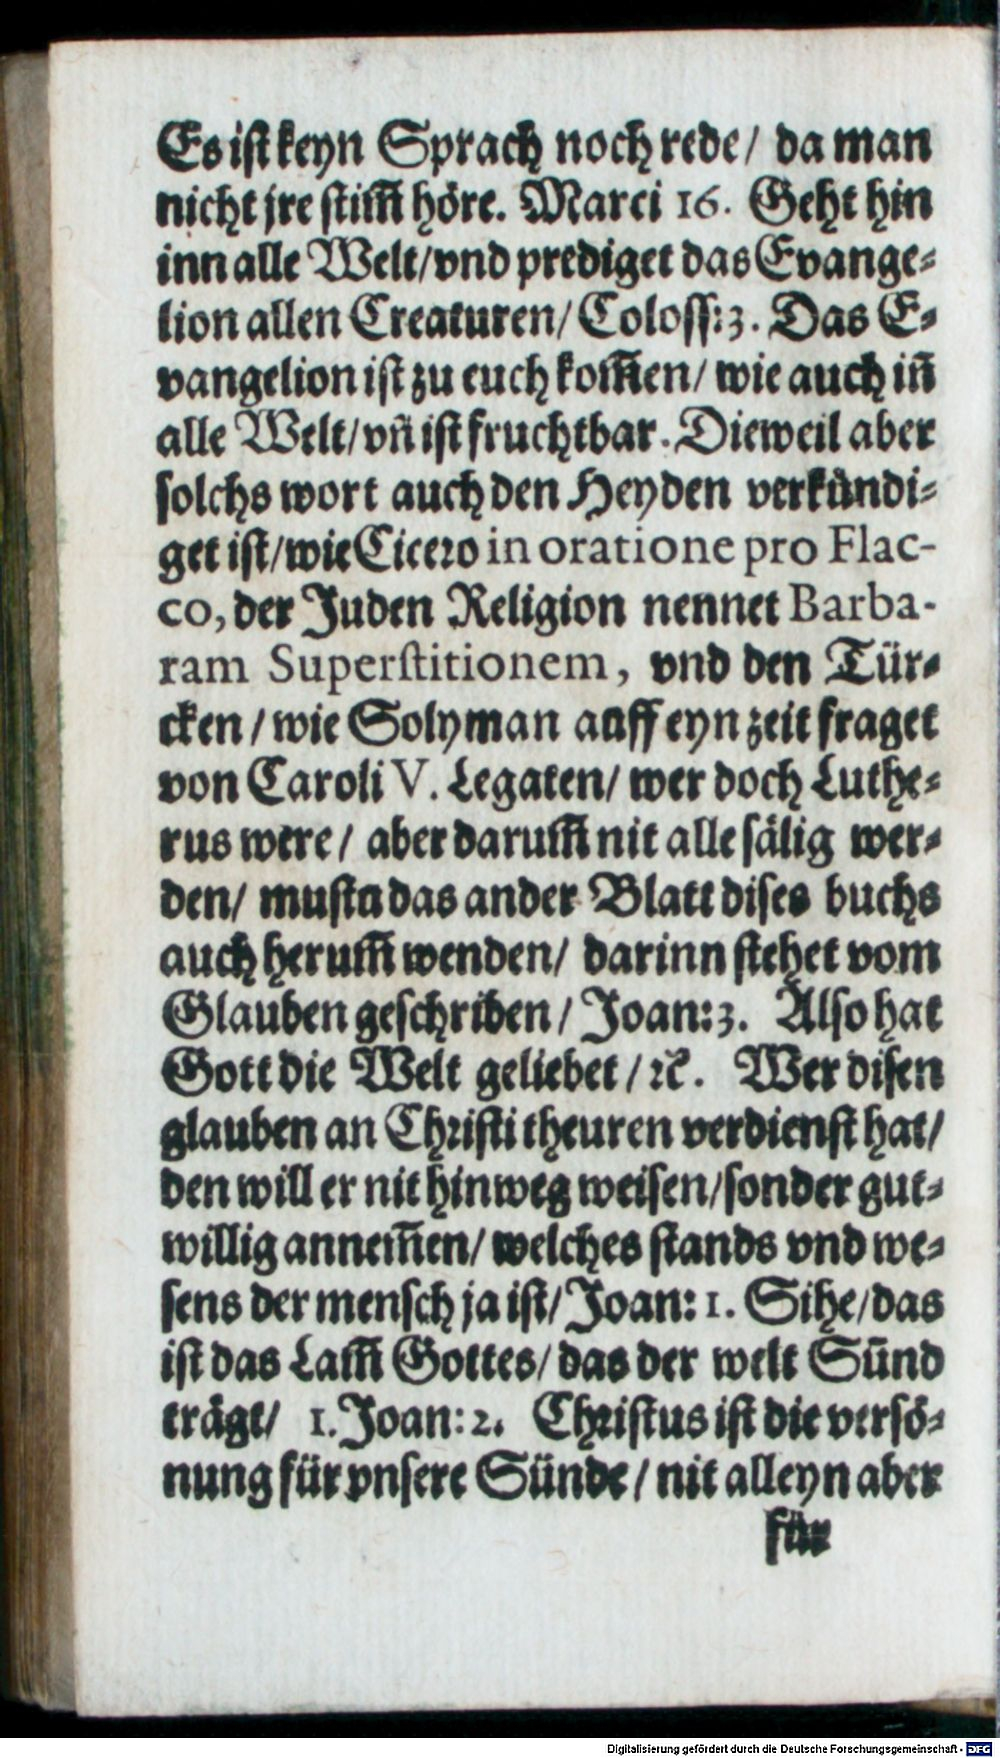 Es ist keyn Sprach noch rede / da man
nicht jre stim̃ höre. Marci 16. Geht hin
inn alle Welt/vnd prediget das Evange-
lion allen Creaturen/ Coloss: 3. Das E-
vangelion ist zu euch kom̃en/ wie auch iñ
alle Welt/vñ ist fruchtbar. Dieweil aber
solchs wort auch den Heyden verkündi-
get ist/wie Cicero in oratione pro Flac-
co, der Juden Religion nennet Barba-
ram Superstitionem, vnd den Tür-
cken / wie Solyman auff eyn zeit fraget
von Caroli V. Legaten/ wer doch Luthe-
rus were / aber darum̃ nit alle sälig wer-
den/ mustu das ander Blatt dises buchs
auch herum̃ wenden/ darinn stehet vom
Glauben geschriben / Joan: 3. Also hat
Gott die Welt geliebet /ꝛc̃. Wer disen
glauben an Christi theuren verdienst hat/
den will er nit hinweg weisen/sonder gut-
willig annem̃en/ welches stands vnd we-
sens der mensch ja ist/ Joan: 1. Sihe/das
ist das Lam̃ Gottes/ das der welt Sünd
trägt/ 1. Joan: 2. Christus ist die versö-
nung für vnsere Sünde / nit alleyn aber
für
Digitalisierung gefördert durch die Deutsche Forschungsgemeinschaft - DFG